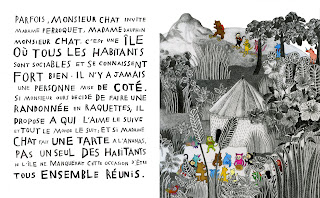 PARFOIS, MONSIEUR CHAT INVITE
MADAME PERROQUET, MADAME DAUPHIN
MONSIEUR CHAT. C'EST UNE ÎLE
OÙ TOUS LES HABITANTS
SONT SOCIABLES ET SE CONNAISSENT
FORT BIEN. IL N'Y A JAMAIS
UNE PERSONNE MISE DE COTÉ.
SI MONSIEUR OURS DÉCIDE DE FAIRE UNE
RANDONNÉE EN RAQUETTES, IL
PROPOSE À QUI L'AIME LE SUIVE
ET TOUT LE MONDE LE SUIT; ET SI MADAME
CHAT FAIT UNE TARTE À L'ANANAS,
PAS UN SEUL DES HABITANTS
DE L'ÎLE NE MANQUERAIT CETTE OCCASION D'ÊTRE
TOUS ENSEMBLE RÉUNIS.